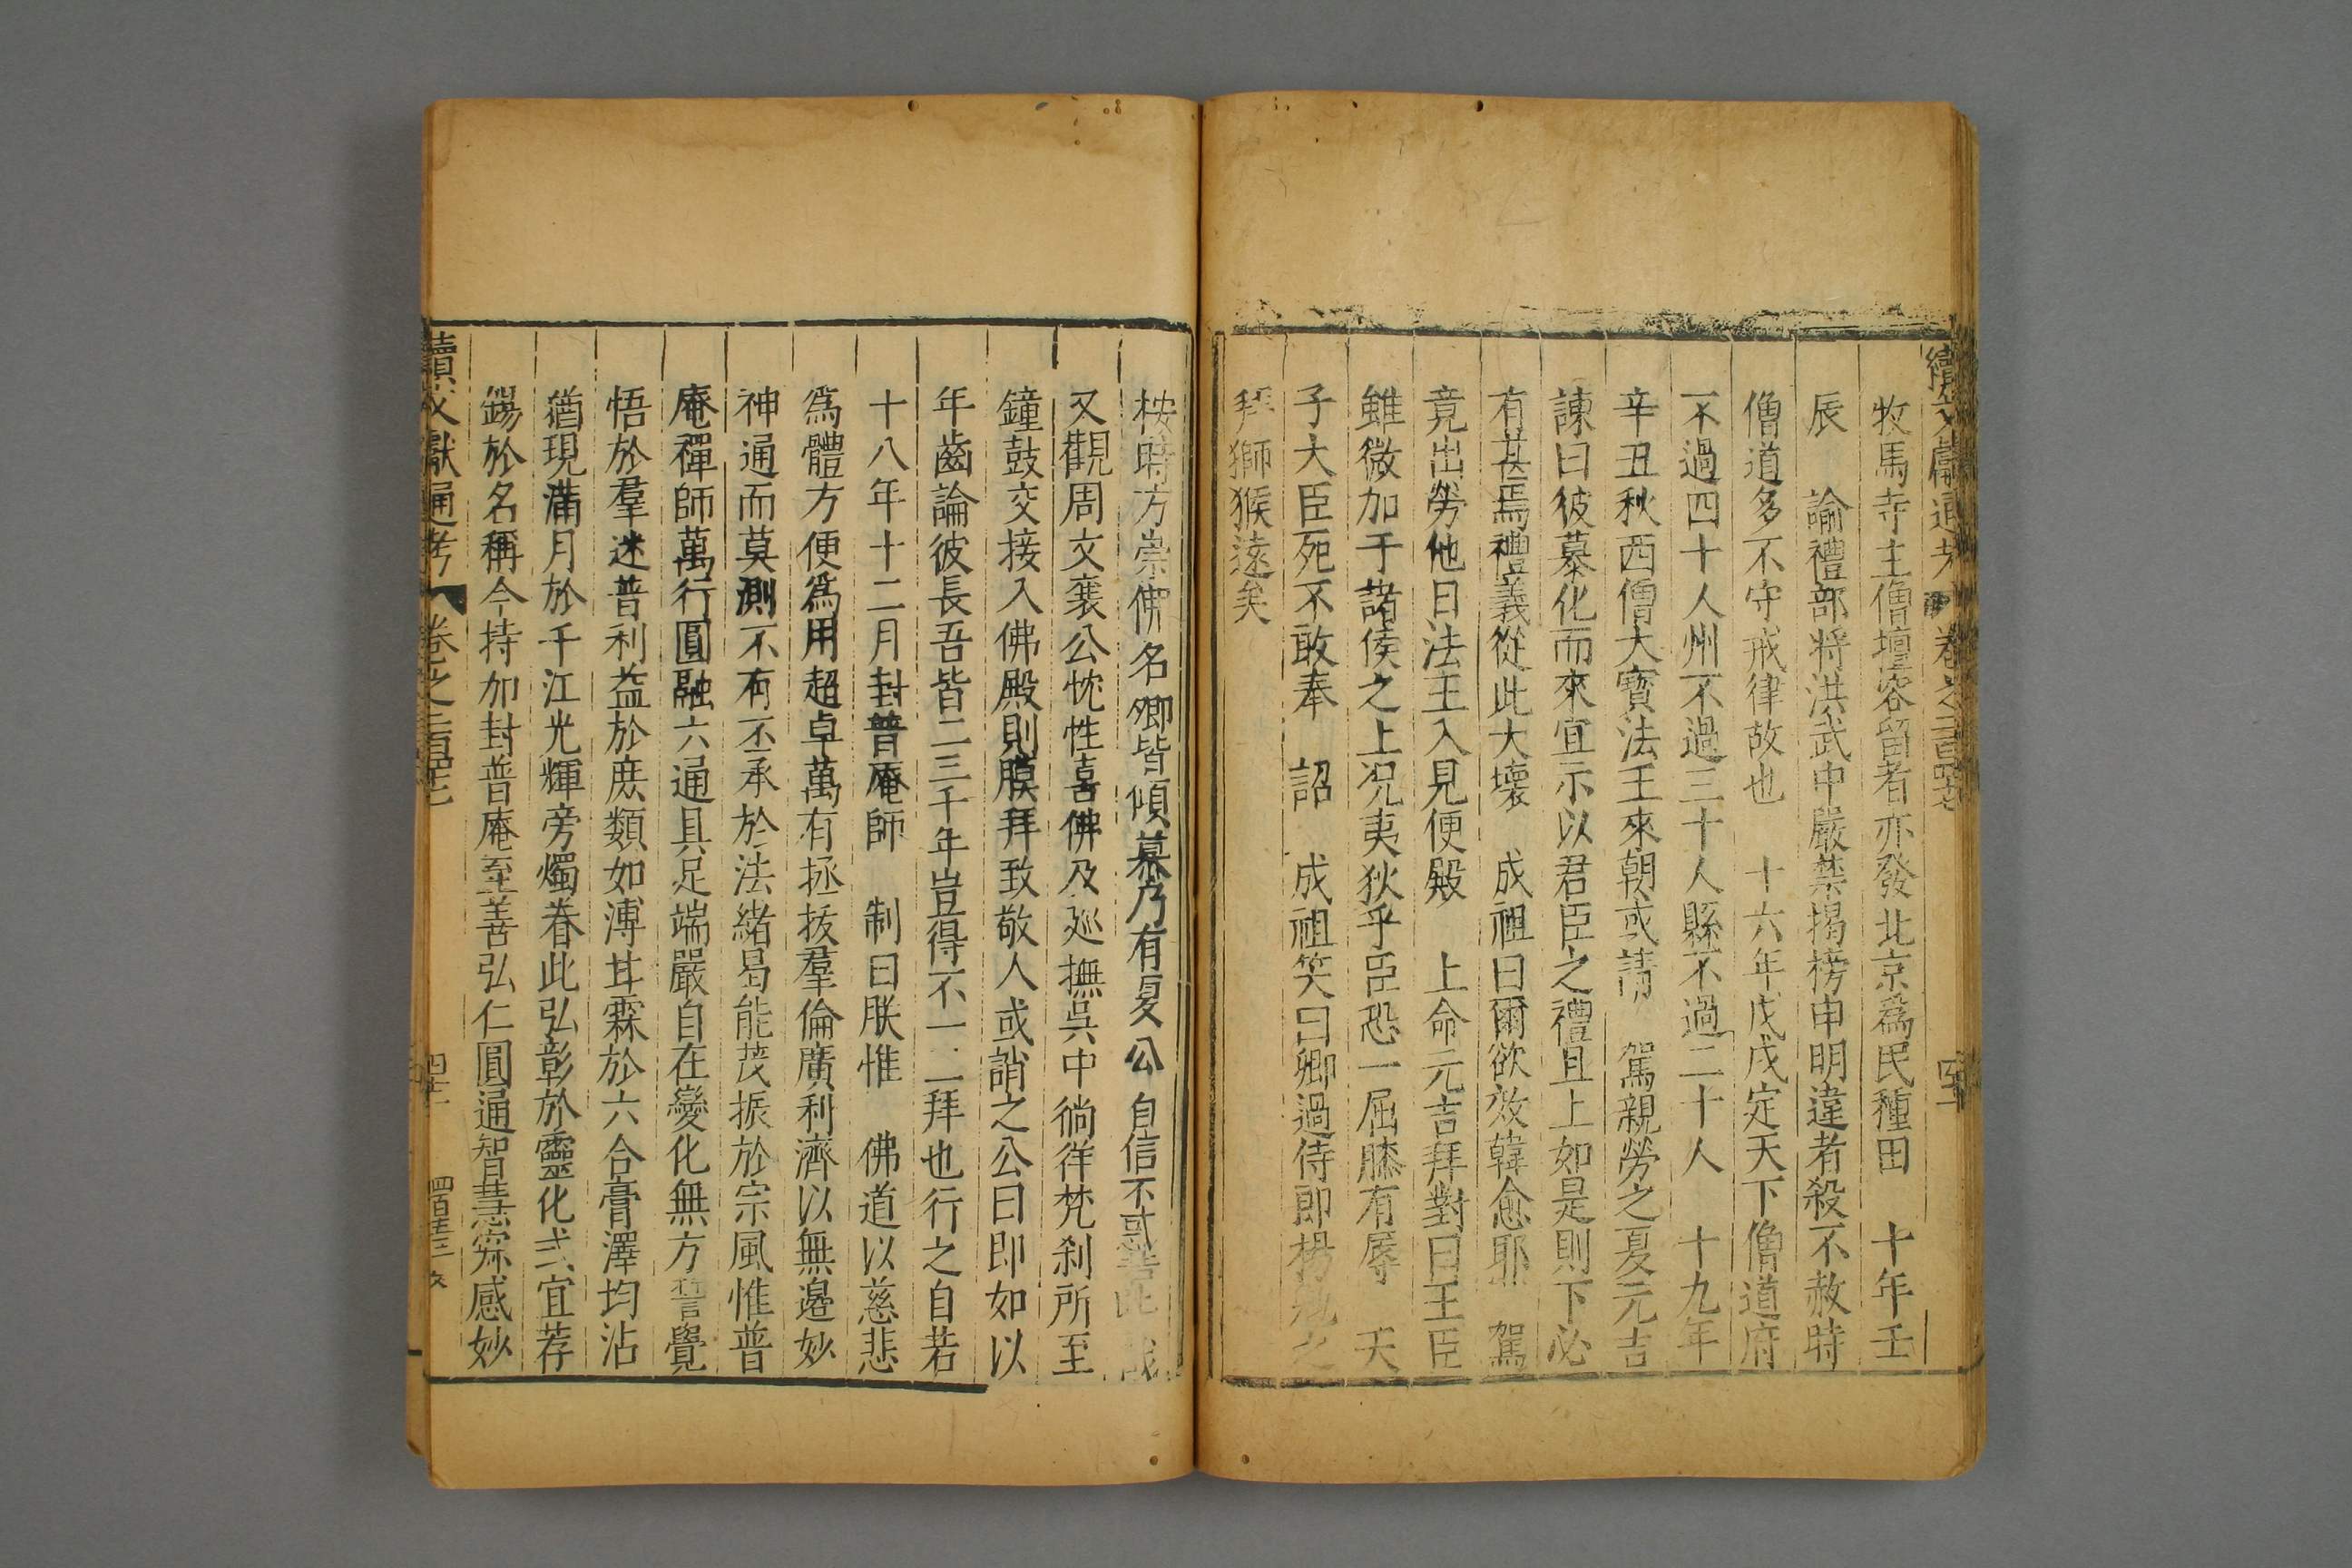 續文獻通考 卷之二百四十
牧馬寺主僧擅容留者亦發北京爲民種田 十年壬
辰 諭禮部將洪武中嚴禁揭榜申明違者殺不赦時
僧道多不守戒律故也 十六年戊戌定天下僧道府
不過四十人州不過三十人縣不過二十人 十九年
辛丑秋西僧大寶法王來朝或請 駕親勞之夏元吉
諫曰彼慕化而來宜示以君臣之禮且上如是則下必
有甚焉禮義從此大壞 成祖曰爾欲效韓愈耶 駕
竟出勞他日法王入見便殿 上命元吉拜對曰王臣
雖微加于諸侯之上况夷狄乎臣恐一屈膝有辱 天
子大臣死不敢奉 詔 成祖笑曰卿過侍郎楊
拜獅猴遠矣
按時方崇佛名卿皆傾慕乃有夏公自信不惑
又觀周文襄公忱性喜佛及廵撫吳中徜徉梵刹所至
鐘鼓交接入佛殿則膜拜致敬人或誚之公曰即如以
年齒論彼長吾皆二三千年豈得不一二拜也行之自若
十八年十二月封普庵師 制曰朕惟 佛道以慈悲
爲體方便爲用超卓萬有拯拔羣倫廣利濟以無邊妙
神通而莫測不有不承於法緒曷能茂振於宗風惟普
庵禪師萬行圓融六通具足端嚴自在變化無方誓覺
悟於羣迷普利益於庶類如溥甘霖於六合膏澤均沾
猶現滿月於千江光輝旁燭眷此弘彰於靈化式宜荐
錫於名稱今持加封普庵至善弘仁圓通智慧寂感妙
續文獻通考 卷之二百四十